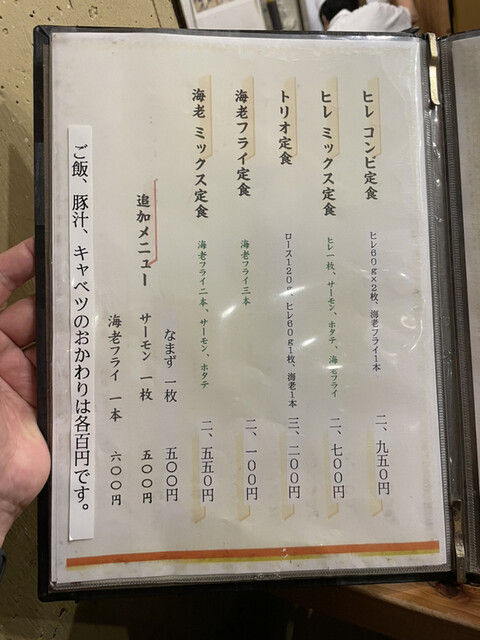 ヒレ コンビ定食 ヒレ60g×2枚、海老フライ1本 二、九五0円
ヒレ ミックス定食 ヒレ一枚、サーモン、ホタテ、海老フライ 二、七00円
トリオ定食 ロース120g、ヒレ60g1枚、海老1本 三、二00円
海老フライ定食 海老フライ三本 二、一00円
海老 ミックス定食 海老フライ二本、サーモン、ホタテ 二、五五0円
追加メニュー
なまず 一枚 五〇〇円
サーモン 一枚 五〇〇円
海老フライ 一本 六〇〇円
ご飯、豚汁、キャベツのおかわりは各百円です。